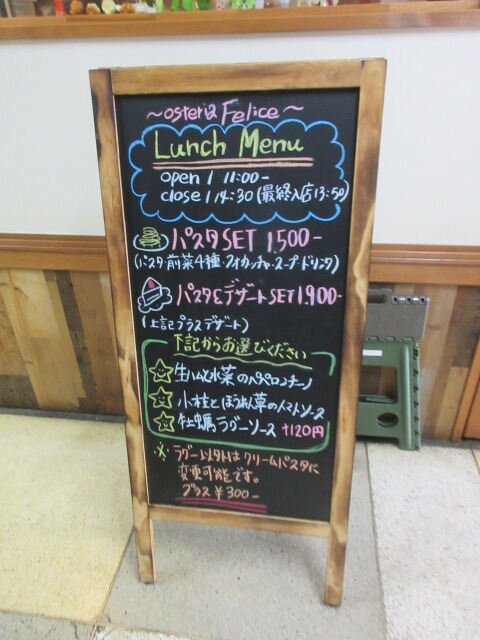 ~osteria Felice~
Lunch Menu
open / 11:00-
close / 14:30 (最終入店13:50)
パスタSET 1,500-
(パスタ・前菜4種・フォカッチャ・スープ・ドリンク)
パスタ&デザートSET 1,900-
(上記プラスデザート)
下記からお選びください
生ハムと水菜のペペロンチーノ
小柱とほうれん草のトマトソース
牡蠣ラグーソース +120円
※ラグー以外はクリームパスタに
変更可能です。
プラス¥300-